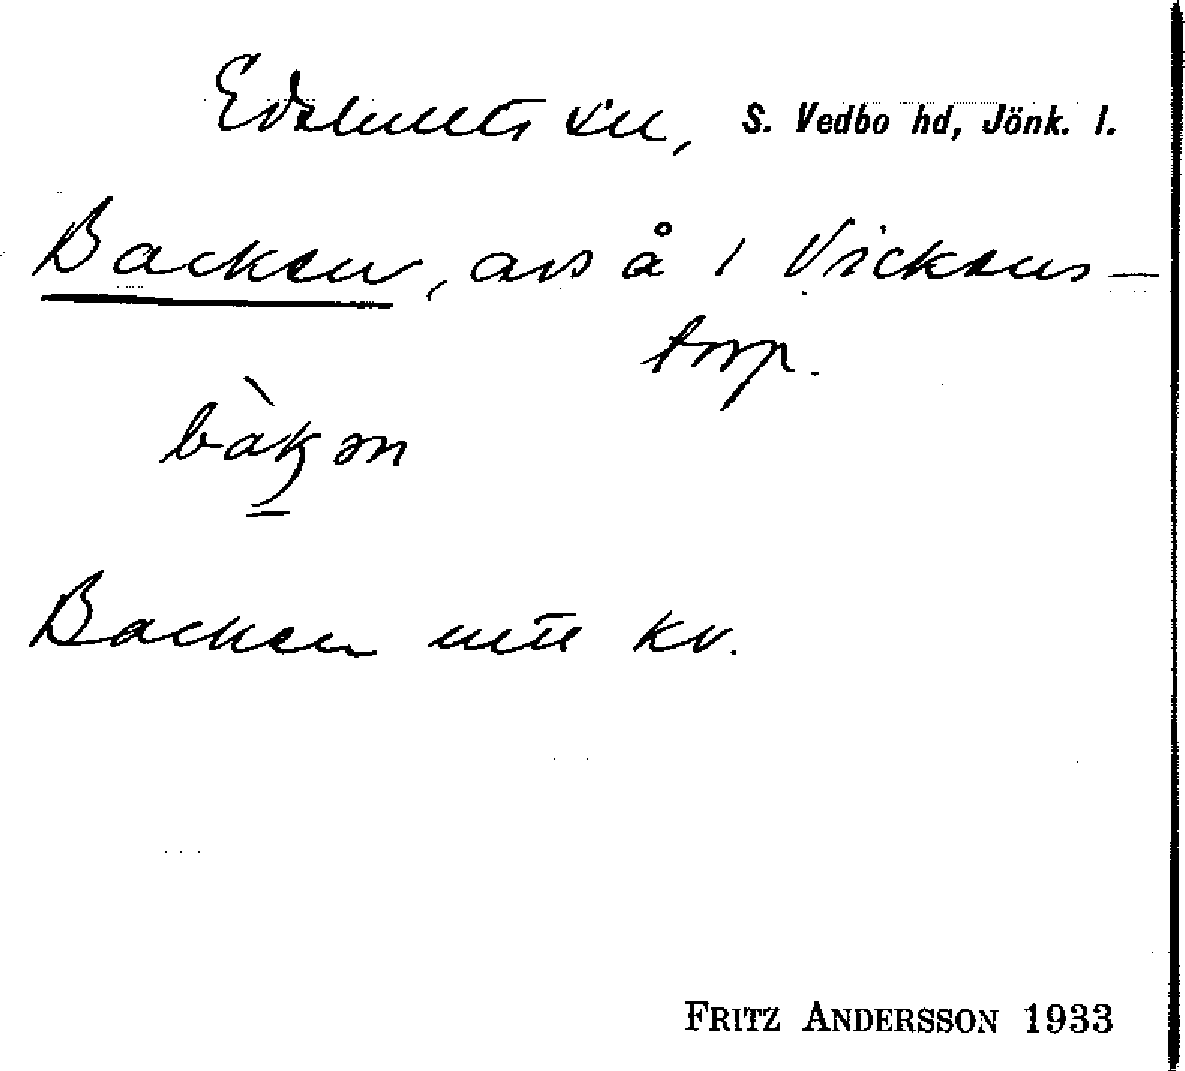 Edshults sn, S. Vedbo hd, Jönk. l.
Backen, avs å 1 Vickens-
torp.
bàkən
Backen inte kv.
FRITZ ANDERSSON 1933